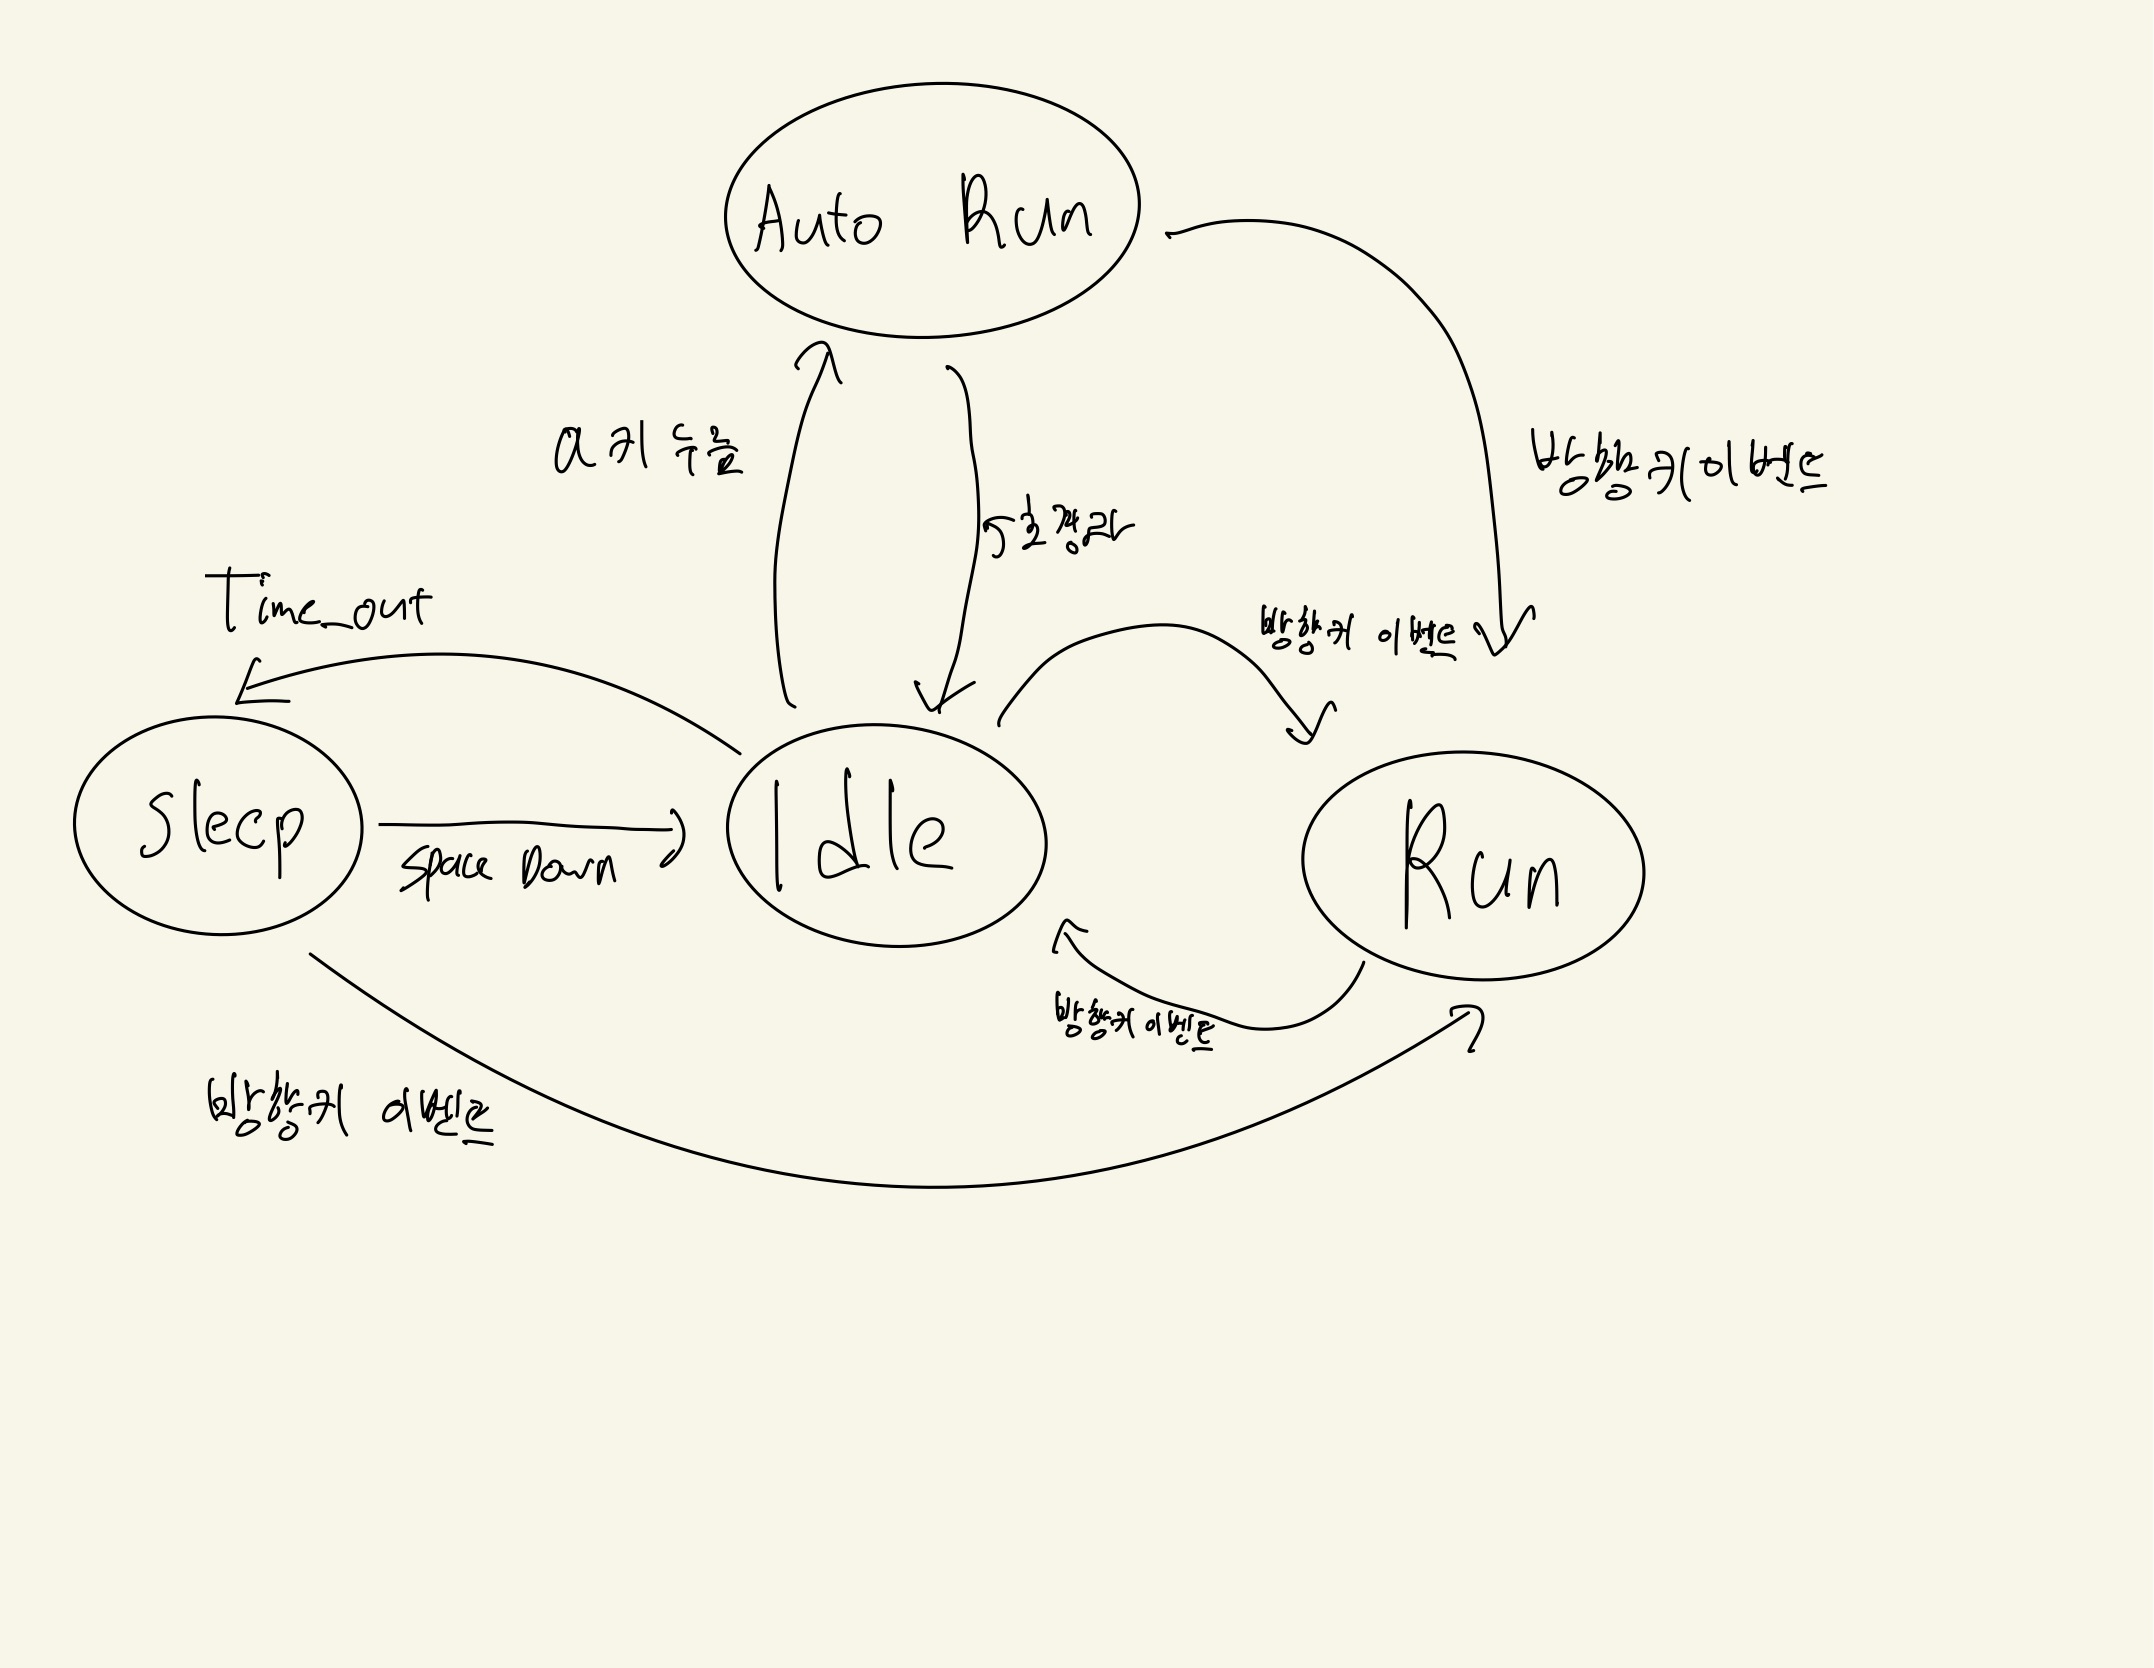 Auto Run
a키 누름
방향키 이벤트
5초 경과
Time_out
방향키 이벤트
Sleep
Space Down
Idle
Run
방향키 이벤트
방향키 이벤트